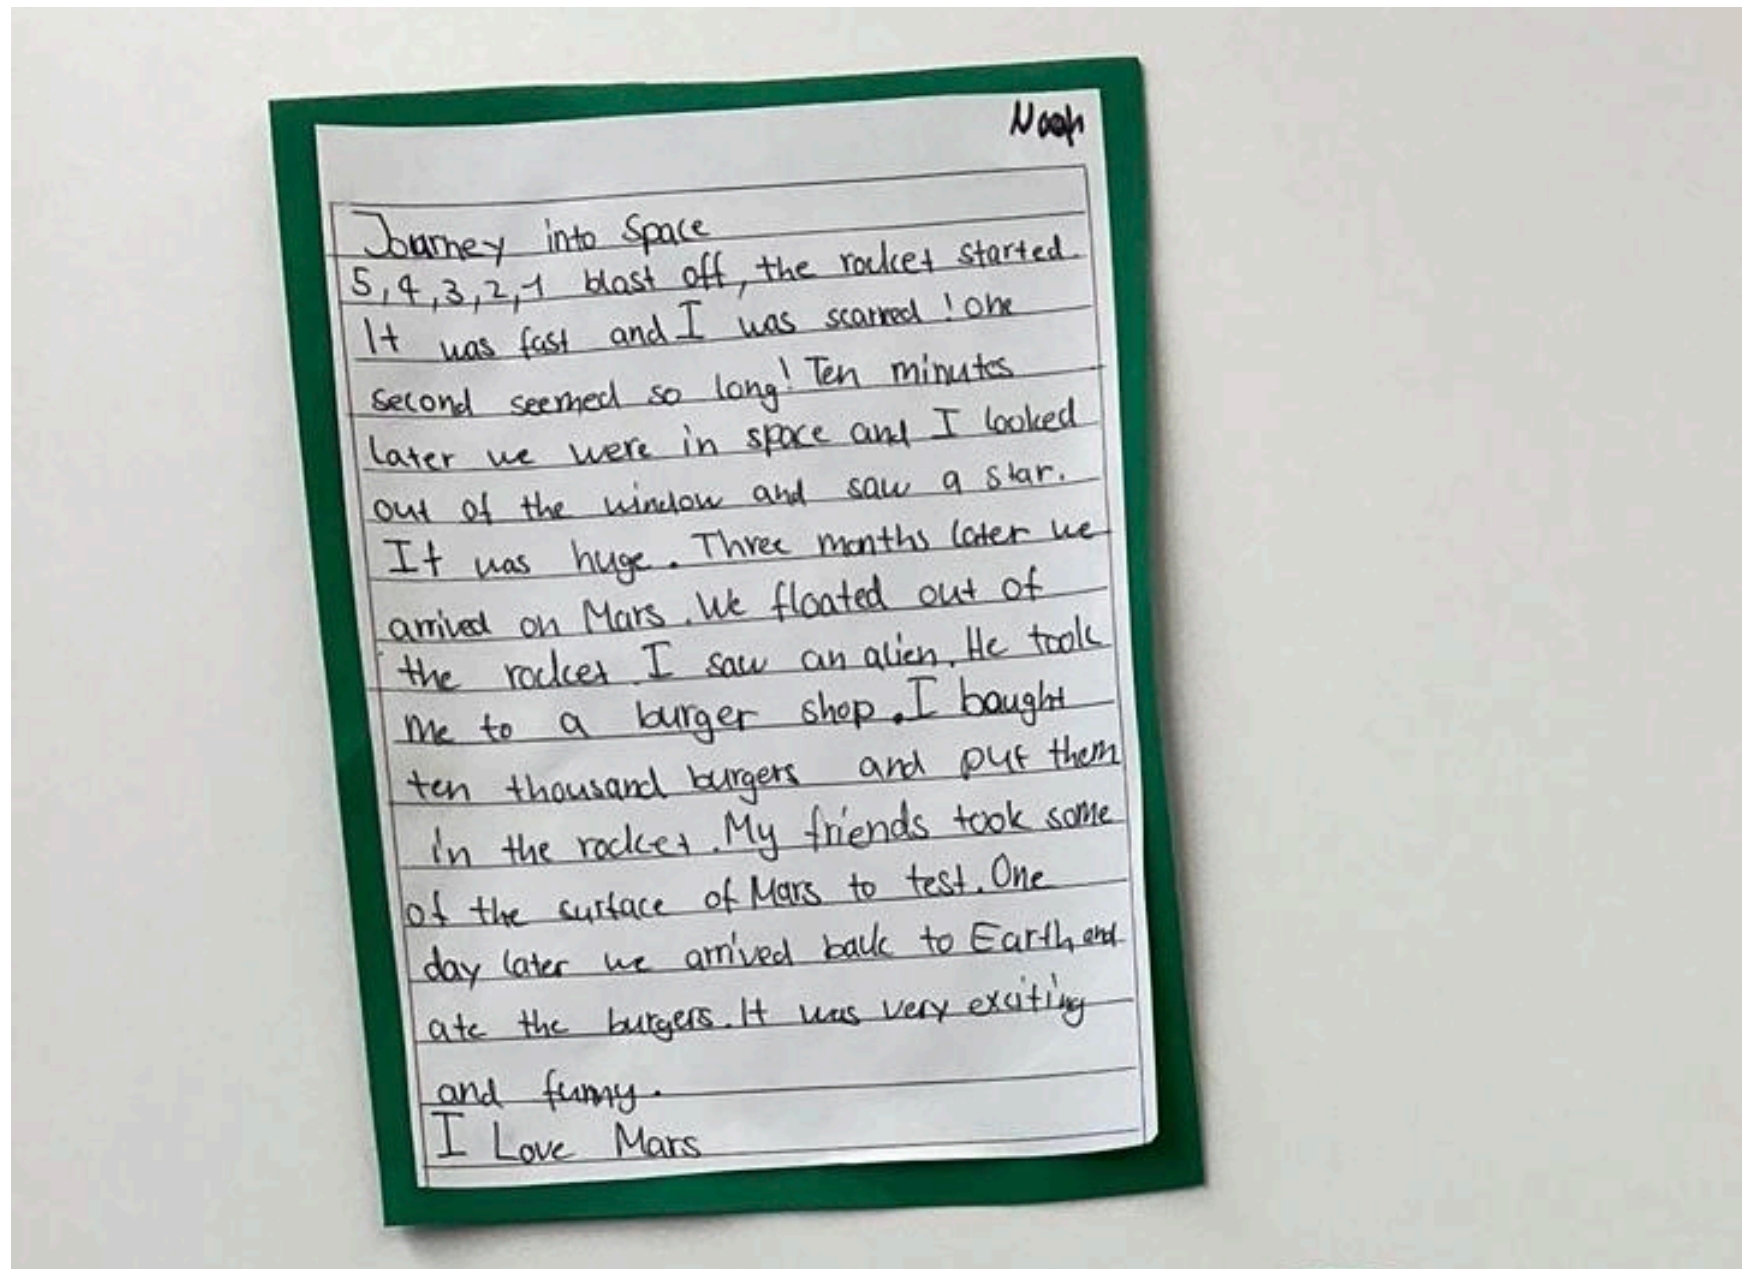 Noah
Journey into Space
5,4,3,2,1 blast off, the rocket started.
It was fast and I was scarred! One
second seemed so long! Ten minutes
later we were in space and I looked
out of the window and saw a star.
It was huge. Three months later we
arrived on Mars. We floated out of
the rocket. I saw an alien. He took
me to a burger shop. I bought
ten thousand burgers and put them
in the rocket. My friends took some
of the surface of Mars to test. One
day later we arrived back to Earth, and
ate the burgers. It was very exciting
and funny.
I Love Mars